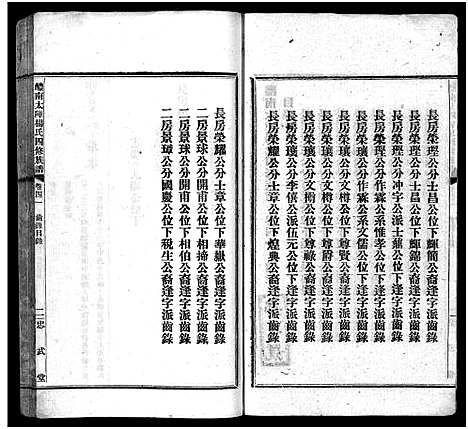 長房榮琝公分士昌公位下輝簡公裔逢字派齒錄
長房榮琝公分士昌公位下輝錦公裔逢字派齒錄
長房榮琝公分冲宇公派士鼎公位下逢字派齒錄
長房榮瓖公分作霖公系惟孝公位下逢字派齒錄
長房榮瓖公分作霖公系文儒公位下逢字派齒錄
長房榮瓖公分文樽公位下尊賢公裔逢字派齒錄
長房榮瓖公分文樽公位下尊爵公裔逢字派齒錄
長房榮瓖公分文樹公位下尊祿公裔逢字派齒錄
長房榮瓖公分李傎公派伍元公位下逢字派齒錄
長房榮耀公分士章公位下煌典公裔逢字派齒錄
長房榮耀公分士章公位下華嶽公裔逢字派齒錄
二房景球公分開甫公位下相掃公裔逢字派齒錄
二房景球公分開甫公位下相伯公裔逢字派齒錄
二房景璋公分國慶公位下稅生公裔逢字派齒錄
醴南太障楊氏四修族譜
卷四
齒錄目錄
二忠武堂